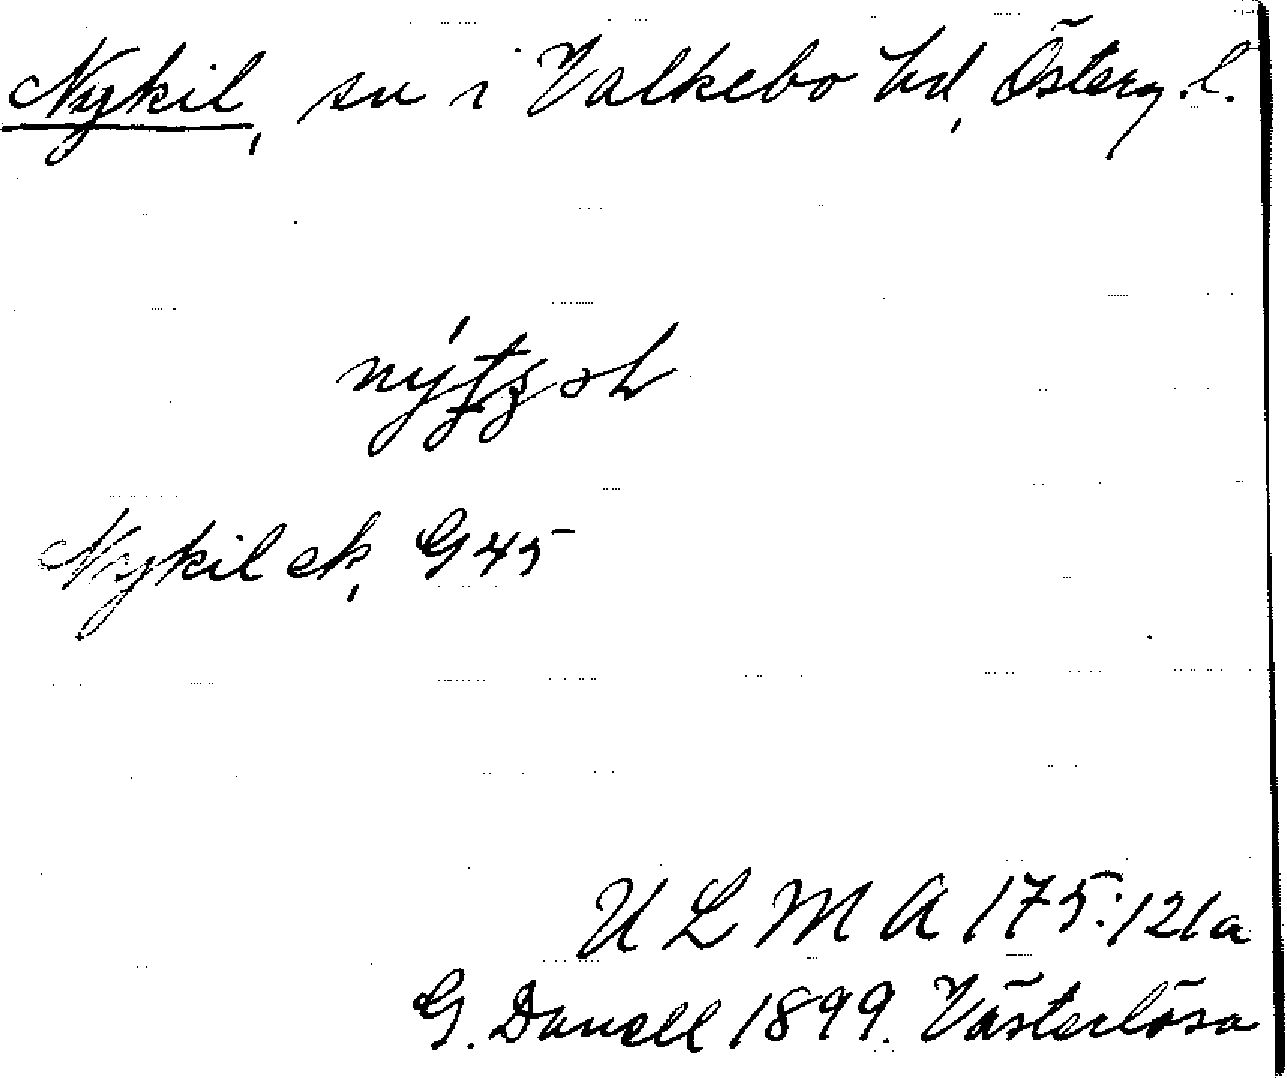 Nykil, sn i Valkebo hd, Österg.l.
Nykil ek, G 45
U L M A 175:121a
G. Danell 1899. Västerlösa